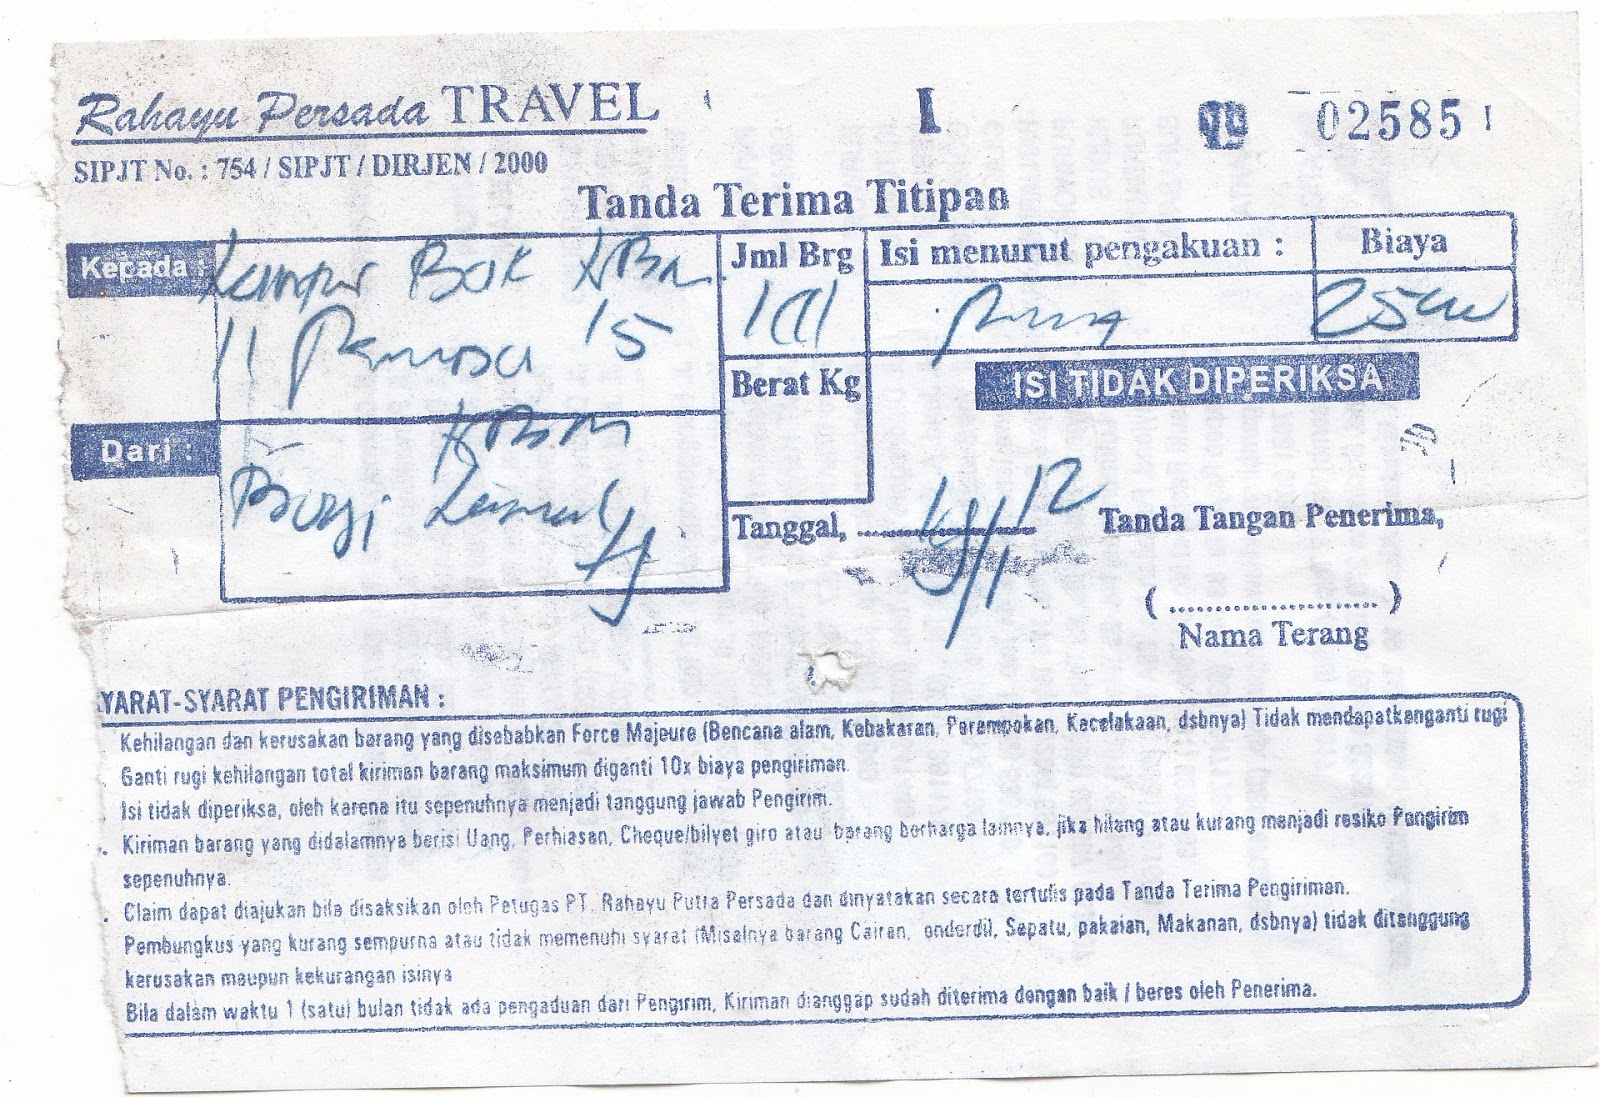 Rahayu Persada TRAVEL
I
No 02585
SIPJT No. : 754 / SIPJT / DIRJEN / 2000
Tanda Terima Titipan
Kepada :
Jml Brg
Isi menurut pengakuan :
Biaya
Bak
15
ISI TIDAK DIPERIKSA
Berat Kg
Dari :
Tanggal, ..............................
12
Tanda Tangan Penerima,
( .......................... )
Nama Terang
YARAT-SYARAT PENGIRIMAN :
Kehilangan dan kerusakan barang yang disebabkan Force Majeure (Bencana alam, Kebakaran, Perampokan, Kecelakaan, dsbnya) Tidak mendapatkenganti rugi
Ganti rugi kehilangan total kiriman barang maksimum diganti 10x biaya pengiriman.
Isi tidak diperiksa, oleh karena itu sepenuhnya menjadi tanggung jawab Pengirim.
Kiriman barang yang didalamnya berisi Uang, Perhiasan, Cheque/bilyet giro atau barang berharga lainnya, jika hilang atau kurang menjadi resiko Pengirim
sepenuhnya.
Claim dapat diajukan bila disaksikan oleh Petugas PT. Rahayu Putra Persada dan dinyatakan secara tertulis pada Tanda Terima Pengiriman.
Pembungkus yang kurang sempurna atau tidak memenuhi syarat (Misalnya barang Cairan, onderdil, Sepatu, pakaian, Makanan, dsbnya) tidak ditanggung
kerusakan maupun kekurangan isinya
Bila dalam waktu 1 (satu) bulan tidak ada pengaduan dari Pengirim, Kiriman dianggap sudah diterima dengan baik / beres oleh Penerima.